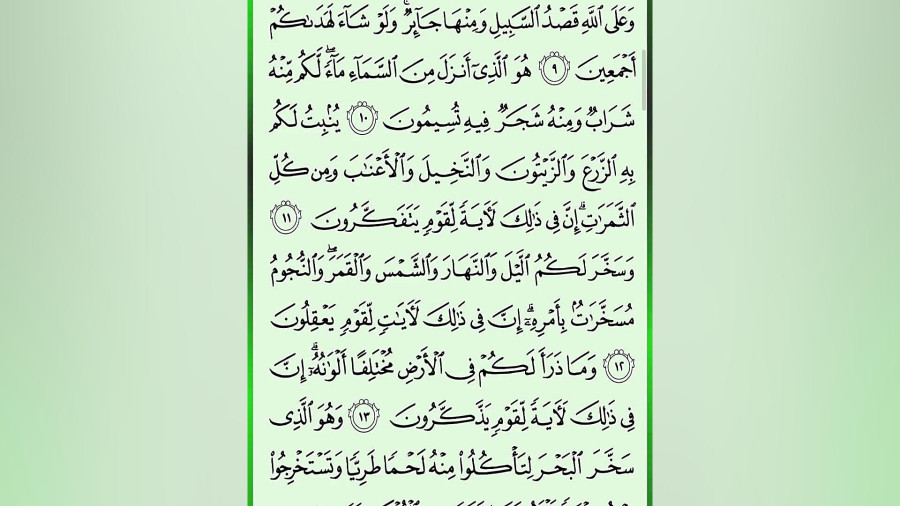 وَعَلَى ٱللَّهِ قَصْدُ ٱلسَّبِيلِ وَمِنْهَا جَآئِرٌ ۚ وَلَوْ شَآءَ لَهَدَىٰكُمْ
أَجْمَعِينَ ٩ هُوَ ٱلَّذِىٓ أَنزَلَ مِنَ ٱلسَّمَآءِ مَآءً ۖ لَّكُم مِّنْهُ
شَرَابٌ وَمِنْهُ شَجَرٌ فِيهِ تُسِيمُونَ ١٠ يُنۢبِتُ لَكُم
بِهِ ٱلزَّرْعَ وَٱلزَّيْتُونَ وَٱلنَّخِيلَ وَٱلْأَعْنَٰبَ وَمِن كُلِّ
ٱلثَّمَرَٰتِ ۗ إِنَّ فِى ذَٰلِكَ لَءَايَةً لِّقَوْمٍ يَتَفَكَّرُونَ ١١
وَسَخَّرَ لَكُمُ ٱلَّيْلَ وَٱلنَّهَارَ وَٱلشَّمْسَ وَٱلْقَمَرَ ۖ وَٱلنُّجُومُ
مُسَخَّرَٰتٌۢ بِأَمْرِهِۦٓ ۗ إِنَّ فِى ذَٰلِكَ لَءَايَٰتٍ لِّقَوْمٍ يَعْقِلُونَ
١٢ وَمَا ذَرَأَ لَكُمْ فِى ٱلْأَرْضِ مُخْتَلِفًا أَلْوَٰنُهُۥٓ ۗ إِنَّ
فِى ذَٰلِكَ لَءَايَةً لِّقَوْمٍ يَذَّكَّرُونَ ١٣ وَهُوَ ٱلَّذِى
سَخَّرَ ٱلْبَحْرَ لِتَأْكُلُوا۟ مِنْهُ لَحْمًا طَرِيًّا وَتَسْتَخْرِجُوا۟